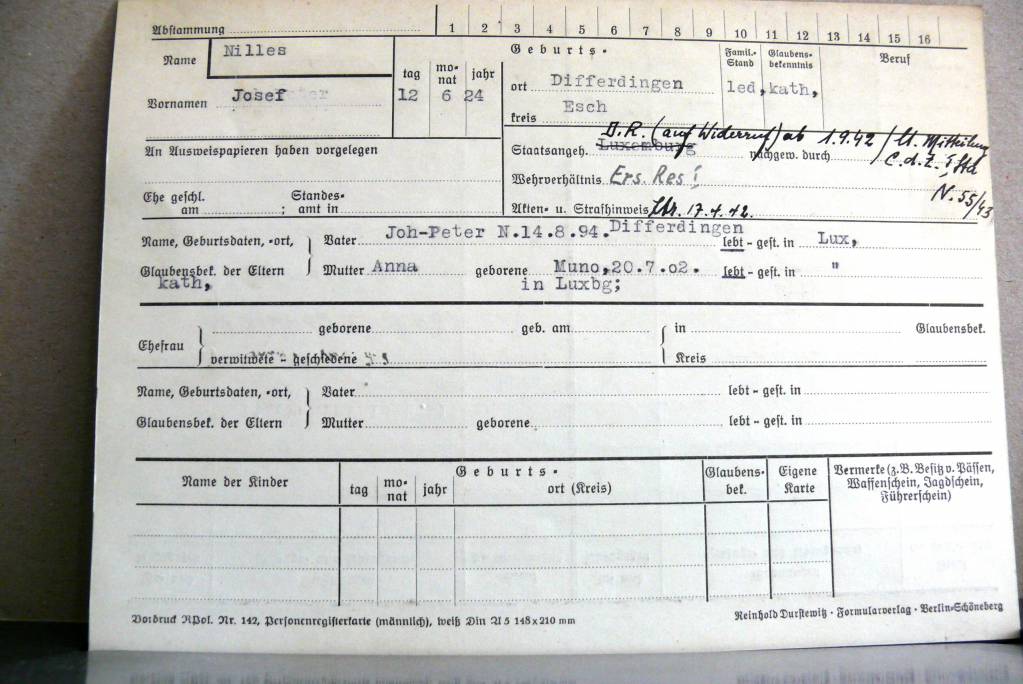 Abstammung 1 2 3 4 5 6 7 8 9 10 11 12 13 14 15 16
Name Nilles
Vornamen Josef
tag monat jahr
12 6 24
Geburts-
ort Differdingen
Esch
kreis
Famil.-Stand
led,
Glaubens-bekenntnis
kath,
Beruf
An Ausweispapieren haben vorgelegen
D.R. (auf Widerruf) ab 1.9.42 / lt. Mitteilung
Staatsangeh. Luxemburg nachgew. durch C.d.Z.
Wehrverhältnis Ers. Res I,
N. 55/43
Ehe geschl. Standes-
am ; amt in
Akten- u. Strafhinweis 17.4.42.
Name, Geburtsdaten, -ort, Vater Joh-Peter N.14.8.94. Differdingen lebt - gest. in Lux,
Glaubensbek. der Eltern Mutter Anna geborene Muno,20.7.02. lebt - gest. in "
kath, in Luxbg;
geborene geb. am in Glaubensbek.
Ehefrau
verwitwete - geschiedene Kreis
Name, Geburtsdaten, -ort, Vater lebt - gest. in
Glaubensbek. der Eltern Mutter geborene lebt - gest. in
Name der Kinder
Geburts-
tag monat jahr ort (Kreis)
Glaubens-
bek.
Eigene
Karte
Vermerke (z.B. Besitz v. Pässen,
Waffenschein, Jagdschein,
Führerschein)
Vordruck RPol. Nr. 142, Personenregisterkarte (männlich), weiß Din A 5 148 x 210 mm
Reinhold Durstewitz · Formularverlag · Berlin-Schöneberg